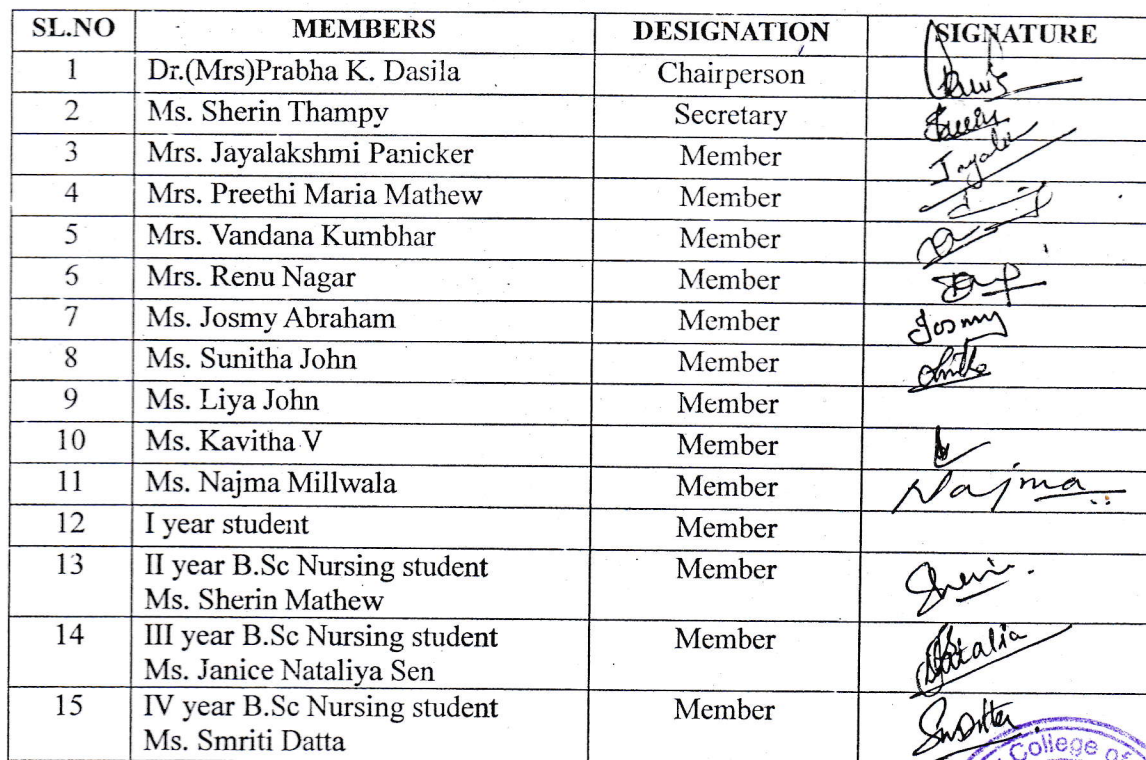 SL.NO MEMBERS DESIGNATION SIGNATURE
1 Dr.(Mrs)Prabha K. Dasila Chairperson
2 Ms. Sherin Thampy Secretary
3 Mrs. Jayalakshmi Panicker Member
4 Mrs. Preethi Maria Mathew Member
5 Mrs. Vandana Kumbhar Member
6 Mrs. Renu Nagar Member
7 Ms. Josmy Abraham Member Josmy
8 Ms. Sunitha John Member
9 Ms. Liya John Member
10 Ms. Kavitha V Member
11 Ms. Najma Millwala Member Najma
12 I year student Member
13 II year B.Sc Nursing student Member
Ms. Sherin Mathew
14 III year B.Sc Nursing student Member Natalia
Ms. Janice Nataliya Sen
15 IV year B.Sc Nursing student Member
Ms. Smriti Datta
College of